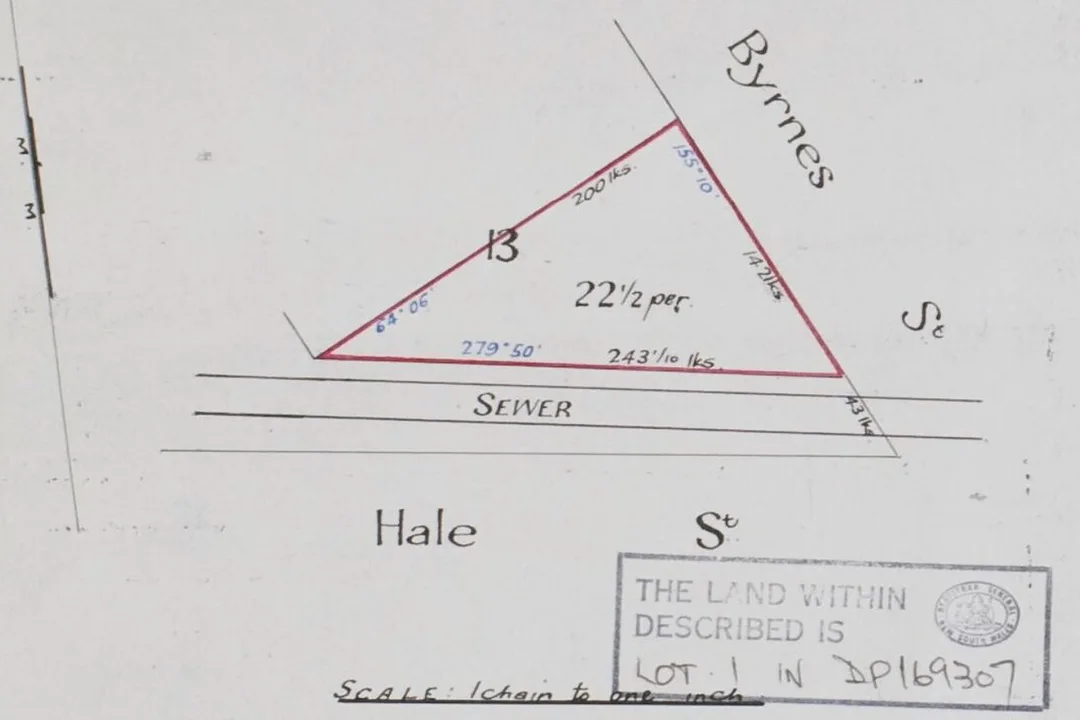 Byrnes
St
3
3
155°10'
200 lks.
13
142 lks
22 1/2 per.
64°06'
279°50'
243 1/10 lks.
SEWER
43 lks
Hale St
THE LAND WITHIN
DESCRIBED IS
LOT 1 IN DP169307
REGISTRAR GENERAL
NEW SOUTH WALES
SCALE: 1 chain to one inch